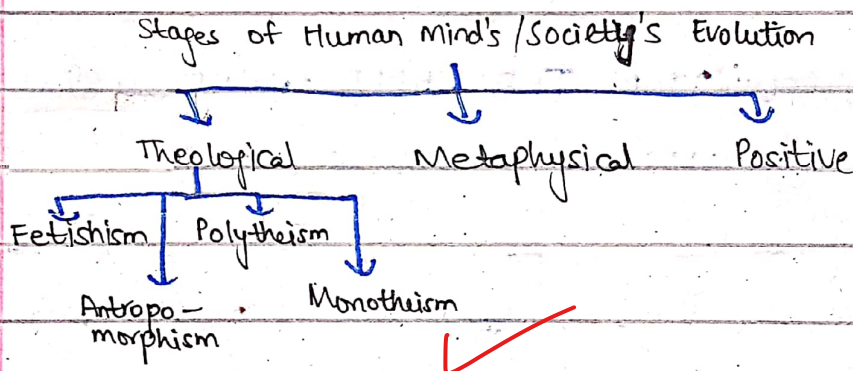 Stages of Human Mind's / Society's Evolution
Theological Metaphysical Positive
Fetishism Polytheism
Antropo - Monotheism
morphism